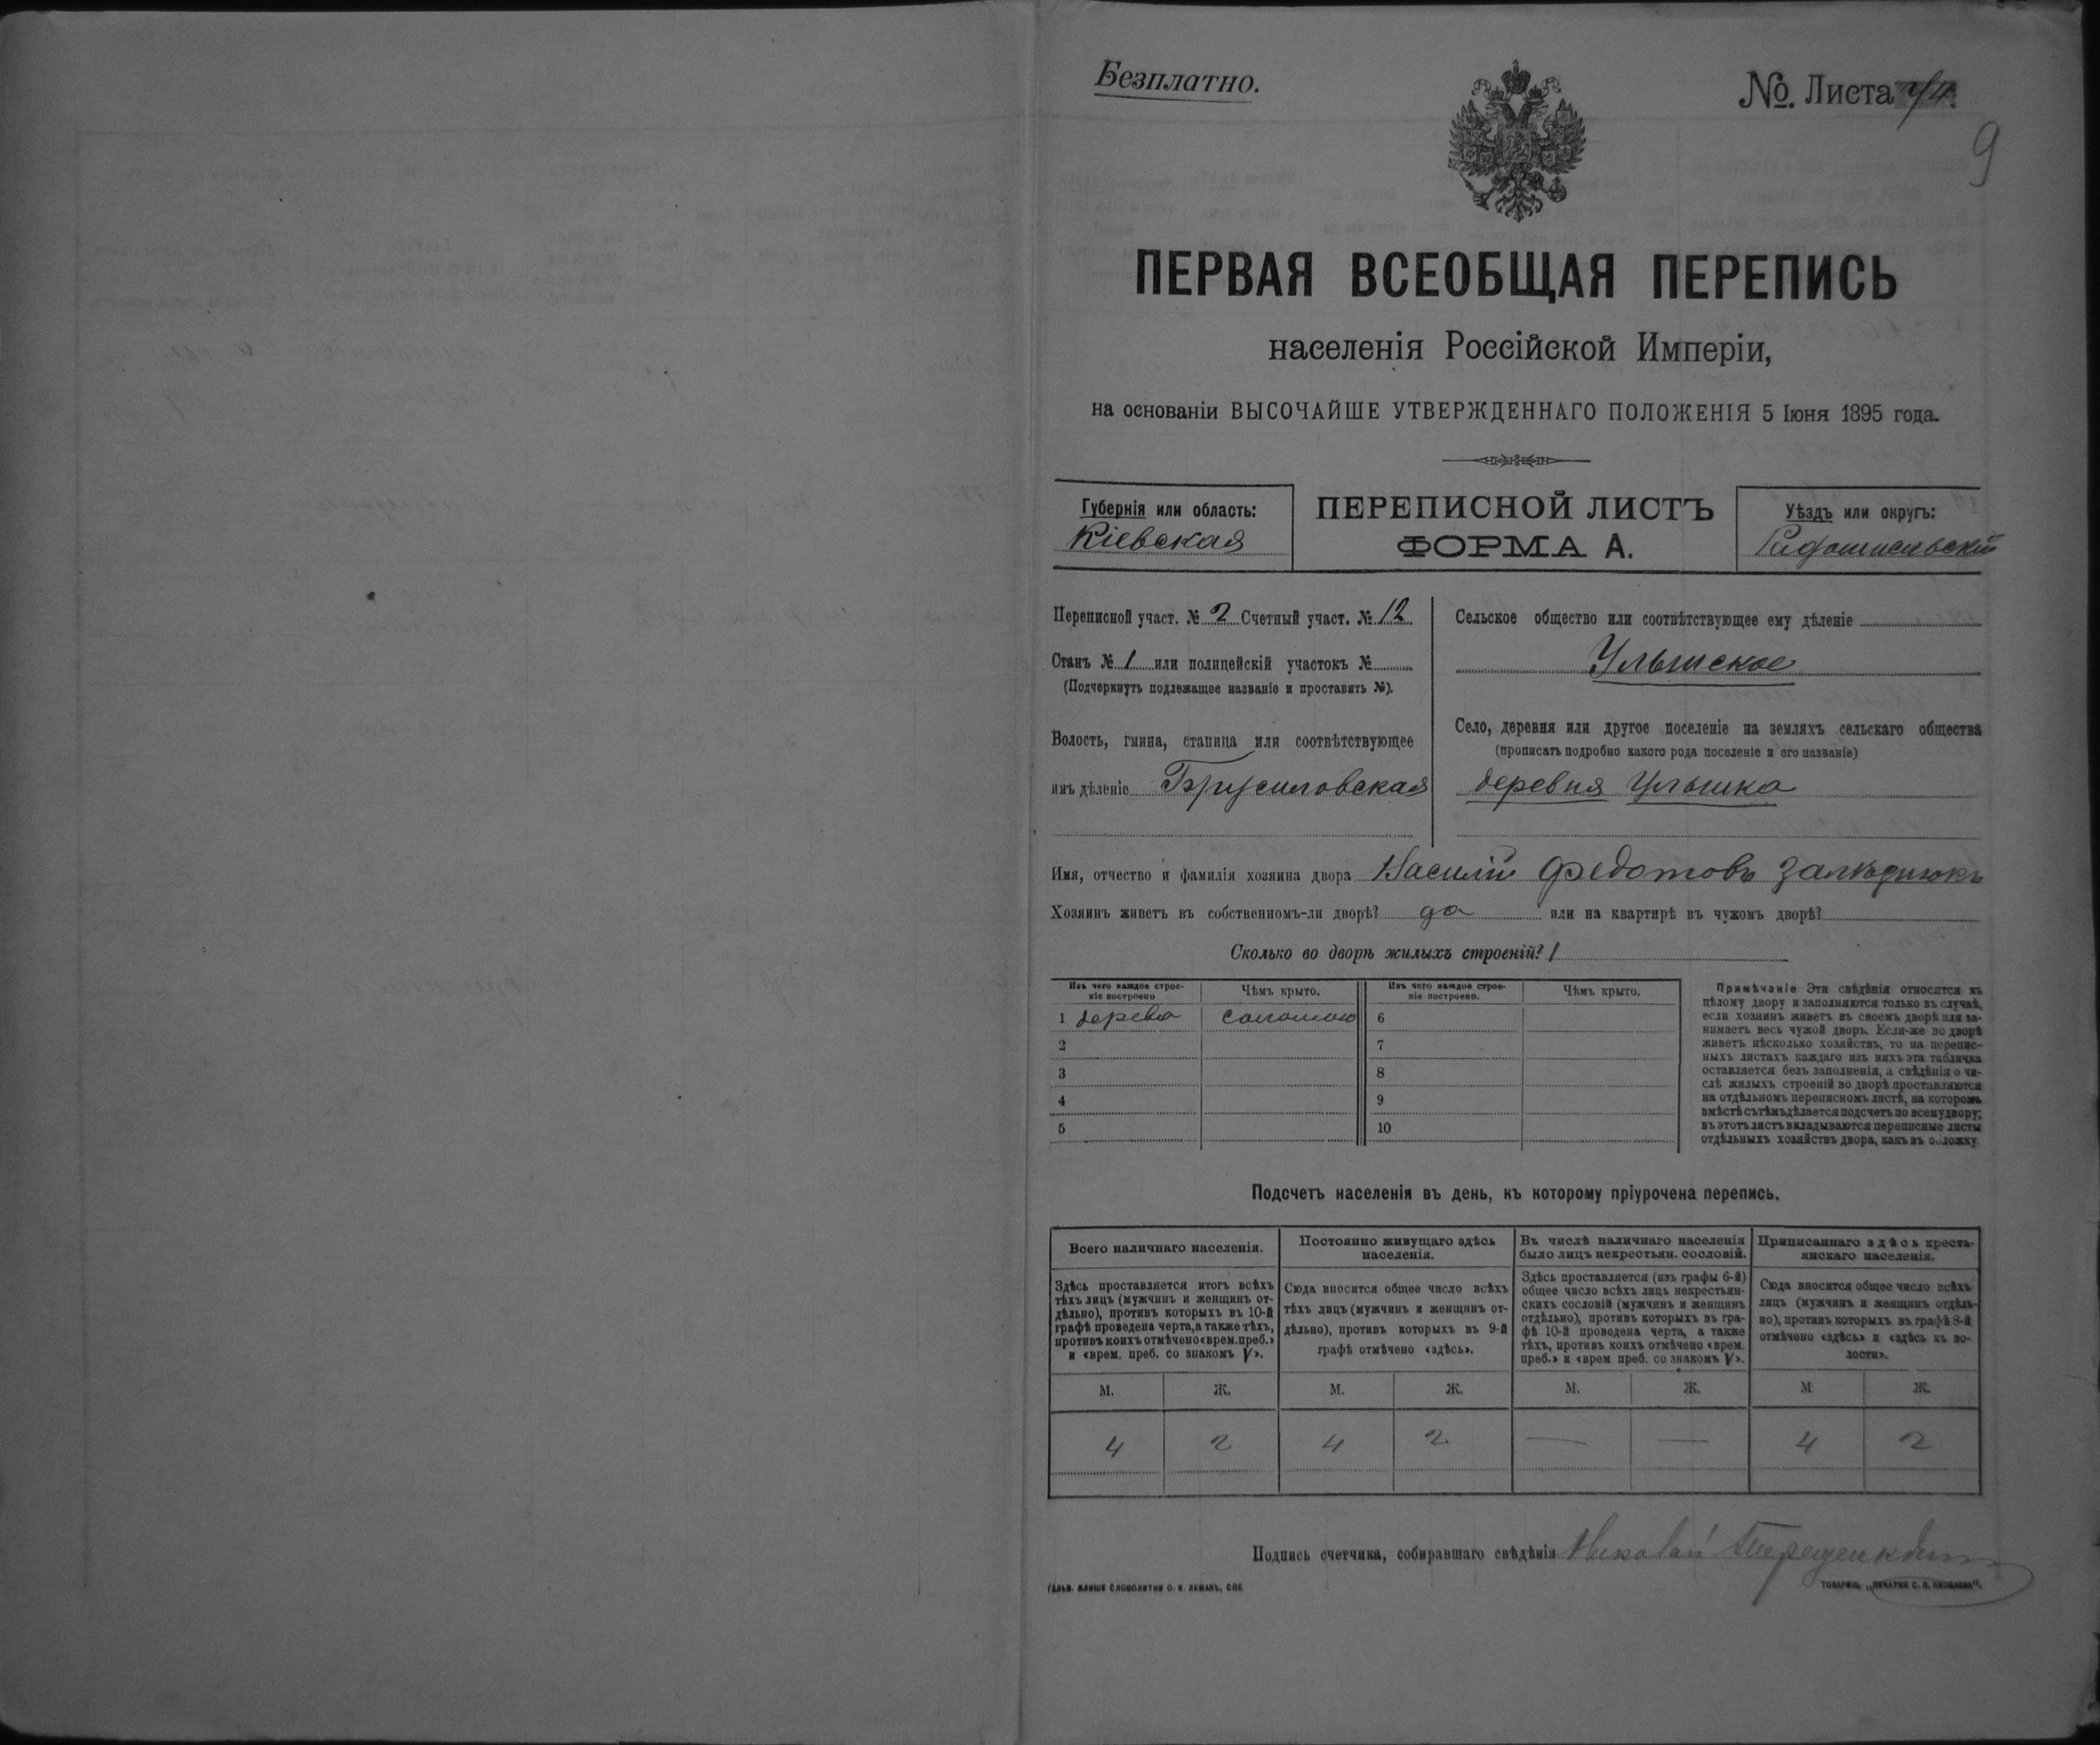 Безплатно.
№. Листа
9
ПЕРВАЯ ВСЕОБЩАЯ ПЕРЕПИСЬ
населенія Россійской Имперіи,
на основаніи ВЫСОЧАЙШЕ УТВЕРЖДЕННАГО ПОЛОЖЕНІЯ 5 Іюня 1895 года.
Губернія или область:
Кіевская
ПЕРЕПИСНОЙ ЛИСТЪ
ФОРМА А.
Уѣздъ или округъ:
Радомысльскій
Переписной участ. № 2 Счетный участ. № 12
Станъ № 1 или полицейскій участокъ №
(Подчеркнуть подлежащее названіе и проставить №).
Волость, гмина, станица или соотвѣтствующее
имъ дѣленіе Брусиловская
Сельское общество или соотвѣтствующее ему дѣленіе
Ульшское
Село, деревня или другое поселеніе на земляхъ сельскаго общества
(прописать подробно какого рода поселеніе и его названіе)
деревня Ульшка
Имя, отчество и фамилія хозяина двора Василій Федотовъ
Хозяинъ живетъ въ собственномъ-ли дворѣ? да или на квартирѣ въ чужомъ дворѣ?
Сколько во дворѣ жилыхъ строеній? 1
Изъ чего каждое строе-
ніе построено
Чѣмъ крыто.
Изъ чего каждое строе-
ніе построено.
Чѣмъ крыто.
1 дерева соломою 6
2 7
3 8
4 9
5 10
Примѣчаніе Эти свѣдѣнія относятся къ
цѣлому двору и заполняются только въ случаѣ,
если хозяинъ живетъ въ своемъ дворѣ или за-
нимаетъ весь чужой дворъ. Если-же во дворѣ
живетъ нѣсколько хозяйствъ, то на перепис-
ныхъ листахъ каждаго изъ нихъ эта табличка
оставляется безъ заполненія, а свѣдѣнія о чи-
слѣ жилыхъ строеній во дворѣ проставляются
на отдѣльномъ переписномъ листѣ, на которомъ
вмѣстѣ съ тѣмъ дѣлается подсчетъ по всему двору;
въ этотъ листъ вкладываются переписные листы
отдѣльныхъ хозяйствъ двора, какъ въ обложку.
Подсчетъ населенія въ день, къ которому пріурочена перепись.
Всего наличнаго населенія.
Постоянно живущаго здѣсь
населенія.
Въ числѣ наличнаго населенія
было лицъ некрестьян. сословій.
Приписаннаго здѣсь кресть-
янскаго населенія.
Здѣсь проставляется итогъ всѣхъ
тѣхъ лицъ (мужчинъ и женщинъ от-
дѣльно), противъ которыхъ въ 10-й
графѣ проведена черта, а также тѣхъ,
противъ коихъ отмѣчено «врем. преб.»
и «врем. преб. со знакомъ V».
Сюда вносится общее число всѣхъ
тѣхъ лицъ (мужчинъ и женщинъ от-
дѣльно), противъ которыхъ въ 9-й
графѣ отмѣчено «здѣсь».
Здѣсь проставляется (изъ графы 6-й)
общее число всѣхъ лицъ некрестьян-
скихъ сословій (мужчинъ и женщинъ
отдѣльно), противъ которыхъ въ гра-
фѣ 10-й проведена черта, а также
тѣхъ, противъ коихъ отмѣчено «врем.
преб.» и «врем преб. со знакомъ V».
Сюда вносится общее число всѣхъ
лицъ (мужчинъ и женщинъ отдѣль-
но), противъ которыхъ въ графѣ 8-й
отмѣчено «здѣсь» и «здѣсь къ во-
лости».
М. Ж. М. Ж. М. Ж. М Ж.
4 2 4 2 — — 4 2
Подпись счетчика, собиравшаго свѣдѣнія Николай
ГАЛЬВ. КЛИШЕ СЛОВОЛИТНИ О. И. ЛЕМАНЪ, СПБ
ТОВАРИЩ. „ПЕЧАТНЯ С. П. ЯКОВЛЕВА“.